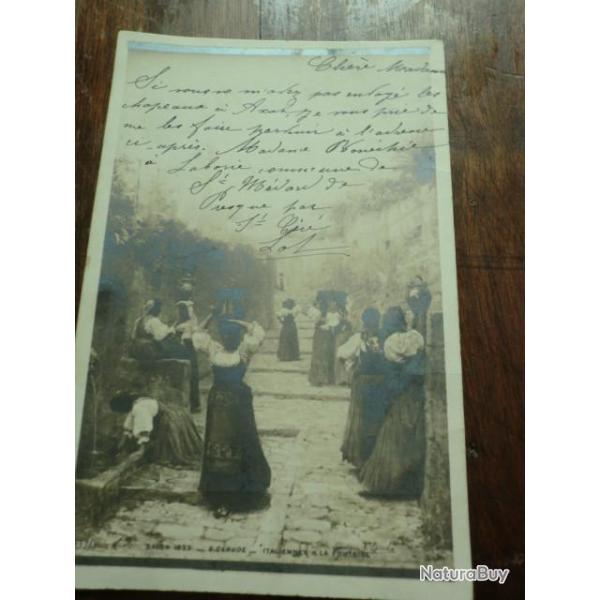 Chère Madame
Si vous ne m'avez pas envoyé les
chapeaux à je vous prie de
me les faire parvenir à l'adresse
ci après. Madame
à Laborie commune de
St Médard de
Presque par
St Céré
Lot
SALON - E. CLAUDE - ITALIENNES A LA FONTAINE
NaturaBuy